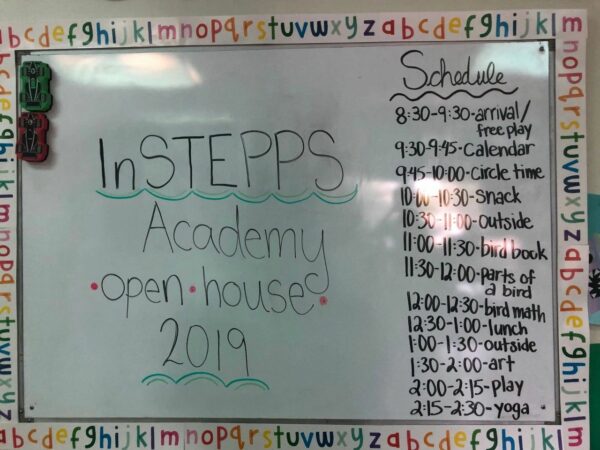 abcdefghijklmnopqrstuvwxyzabcdefghijklm
InSTEPPS
Academy
open house
2019
Schedule
8:30-9:30-arrival/
free play
9:30-9:45-Calendar
9:45-10:00-Circle time
10:00-10:30-Snack
10:30-11:00-outside
11:00-11:30-bird book
11:30-12:00-parts of
a bird
12:00-12:30-bird math
12:30-1:00-lunch
1:00-1:30-outside
1:30-2:00-art
2:00-2:15-play
2:15-2:30-yoga
nopqrstuvwxyzabcdefghijklm
abcdefghijklmnopqrstuvwxyzabcdefghijklm